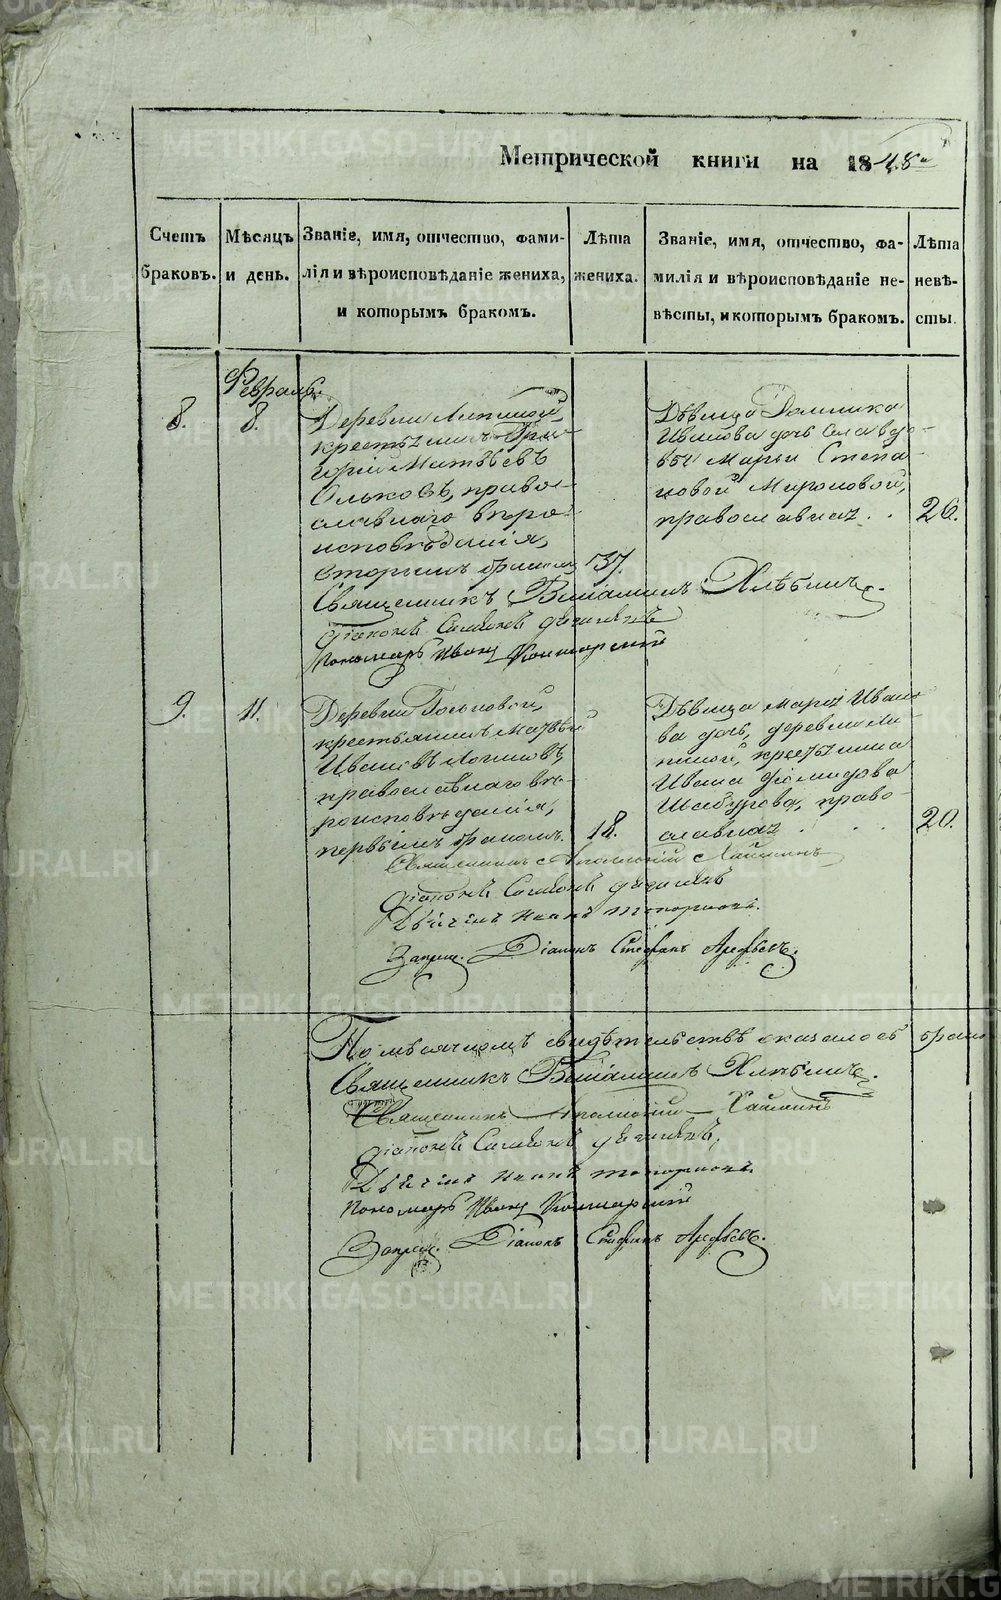 Метрической книги на 1848й
Счетъ браковъ.
Мѣсяцъ и день.
Званіе, имя, отчество, фами-
лія и вѣроисповѣданіе жениха,
и которымъ бракомъ.
Лѣта
жениха.
Званіе, имя, отчество, фа-
милія и вѣроисповѣданіе не-
вѣсты, и которымъ бракомъ.
Лѣта
невѣ-
сты.
Февраль.
8.
8.
Деревни Липиной,
крестьянинъ Гри-
горій Матвѣевъ
Ольковъ, право-
славнаго вѣро-
исповѣданія,
вторымъ бракомъ
37.
Дѣвица Домника
Иванова дочь вдо
Марьи Степа-
новой Мироновой,
православная . .
26.
Священникъ Веніаминъ Хлѣбинъ.
діаконъ Симеонъ
пономарь Иванъ
9.
11.
Деревни
крестьянинъ Матвѣй
Ивановъ Логиновъ,
православнаго вѣ-
роисповѣданія,
первымъ бракомъ.
18.
Дѣвица Марія Ивано-
ва дочь, деревни Ли-
пиной, крестьянина
Ивана Діомидова
Шабурова, право-
славная . . .
20.
Священникъ Аполлоній
діаконъ Симеонъ
Дьячекъ Иванъ
Запрещ. Діаконъ Стефанъ Арефьевъ.
По мѣсячномъ свидѣтельствѣ оказалось брако
Священникъ Веніаминъ Хлѣбинъ.
Священникъ Аполлоній
діаконъ Симеонъ
Дьячекъ Иванъ
пономарь Иванъ
Запрещ. Діаконъ Стефанъ Арефьевъ.
METRIKI.GASO-URAL.RU